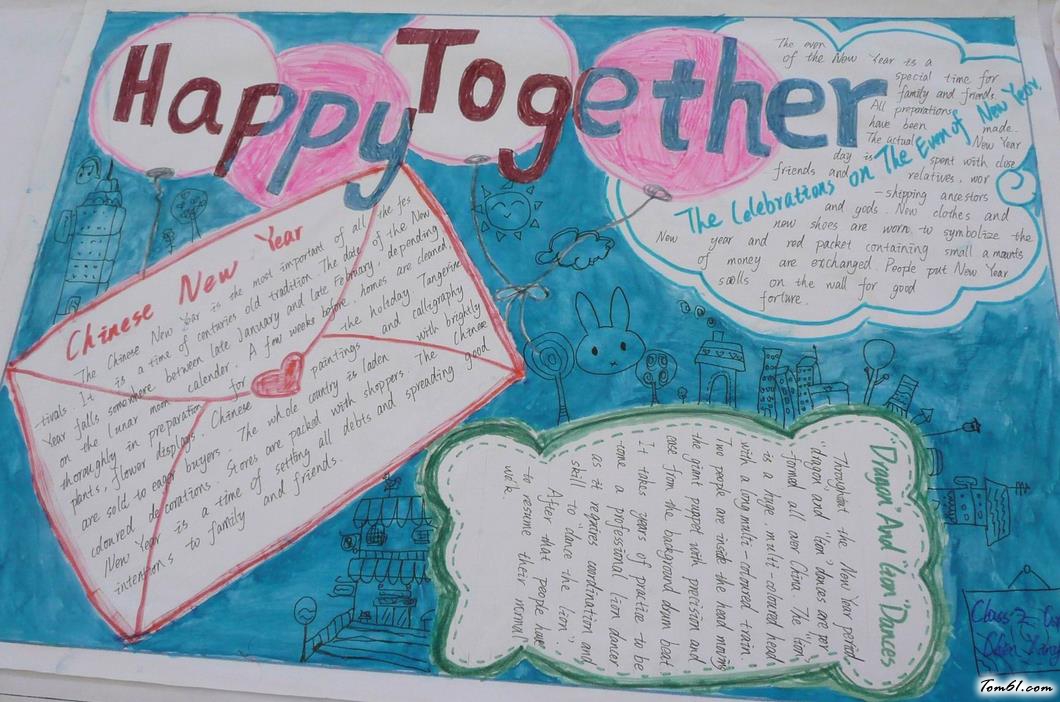 Happy Together
Chinese New Year
The Chinese New Year is the most important of all the fes
-tivals. It is a time of centuries old tradition. The date of the New
Year falls somewhere between late January and late February, depending
on the lunar moon calender. A few weeks before, homes are cleaned,
thoroughly in preparation for the holiday. Tangerine
plants, flower displays, Chinese paintings and calligraphy
are sold to eager buyers. The whole country is laden with brightly
coloured decorations. Stores are packed with shoppers. The Chinese
New Year is a time of setting all debts and spreading good
intentions to family and friends.
The Celebrations on The Even of New Year
The even
of the New Year is a
special time for
family and friends.
All preparations
have been made.
The actual New Year
day is spent with close
friends and relatives, wor
-shipping ancestors
and gods. New clothes and
new shoes are worn to symbolize the
New year and red packet containing small amounts
of money are exchanged. People put New Year
scolls on the wall for good
forture.
"Dragon" And "Lion" Dances
Thoughout the New Year period,
"dragon and "lion" dances are per
-formed all over China. The "lion"
is a huge, multi-coloured head
with a long multi-coloured train
Two people are inside the head moving
the giant puppet with precision and
ease from the background drum beat
It takes years of practice to be
-come a professional lion dancer
as it reqires coordination and
skill to "dance the lion" and
After that people have
to resume their normal
work.
Class 2
Chen
Tom61.com